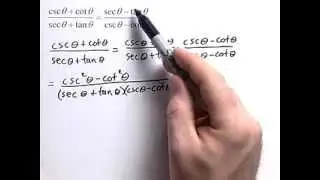 cscθ + cotθ / secθ + tanθ = secθ − tanθ / cscθ − cotθ
cscθ + cotθ / secθ + tanθ = cscθ + θ / secθ + θ · cscθ − cotθ / cscθ − cotθ
= csc²θ − cot²θ / (secθ + tanθ)(cscθ − cotθ